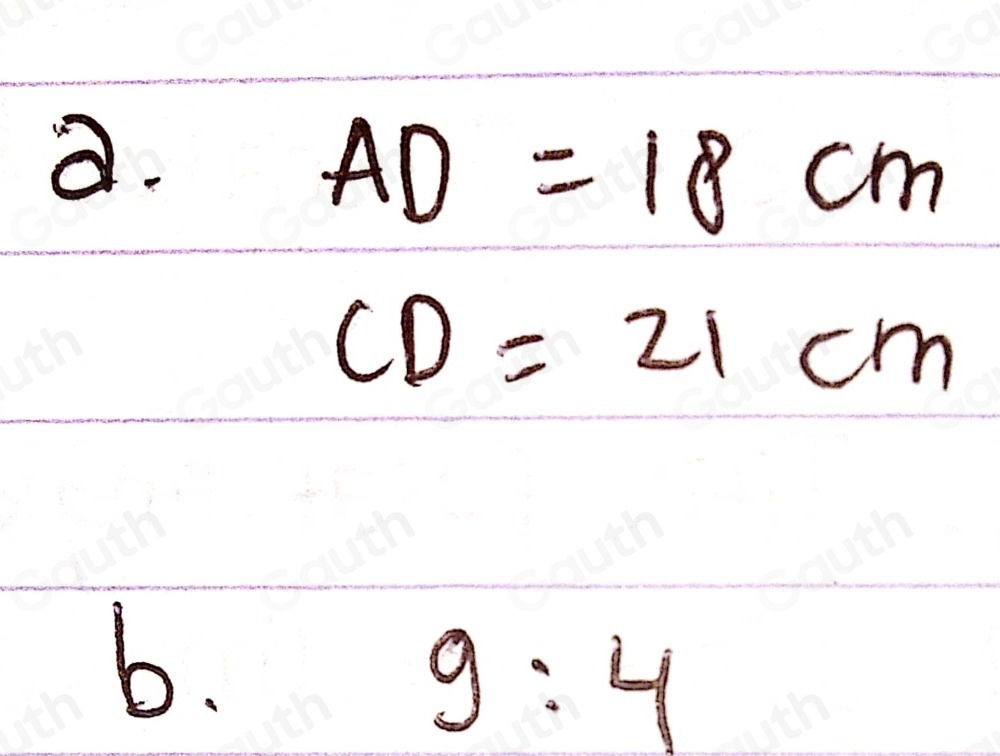 a. AD = 18 cm
CD = 21 cm
b. 9 : 4